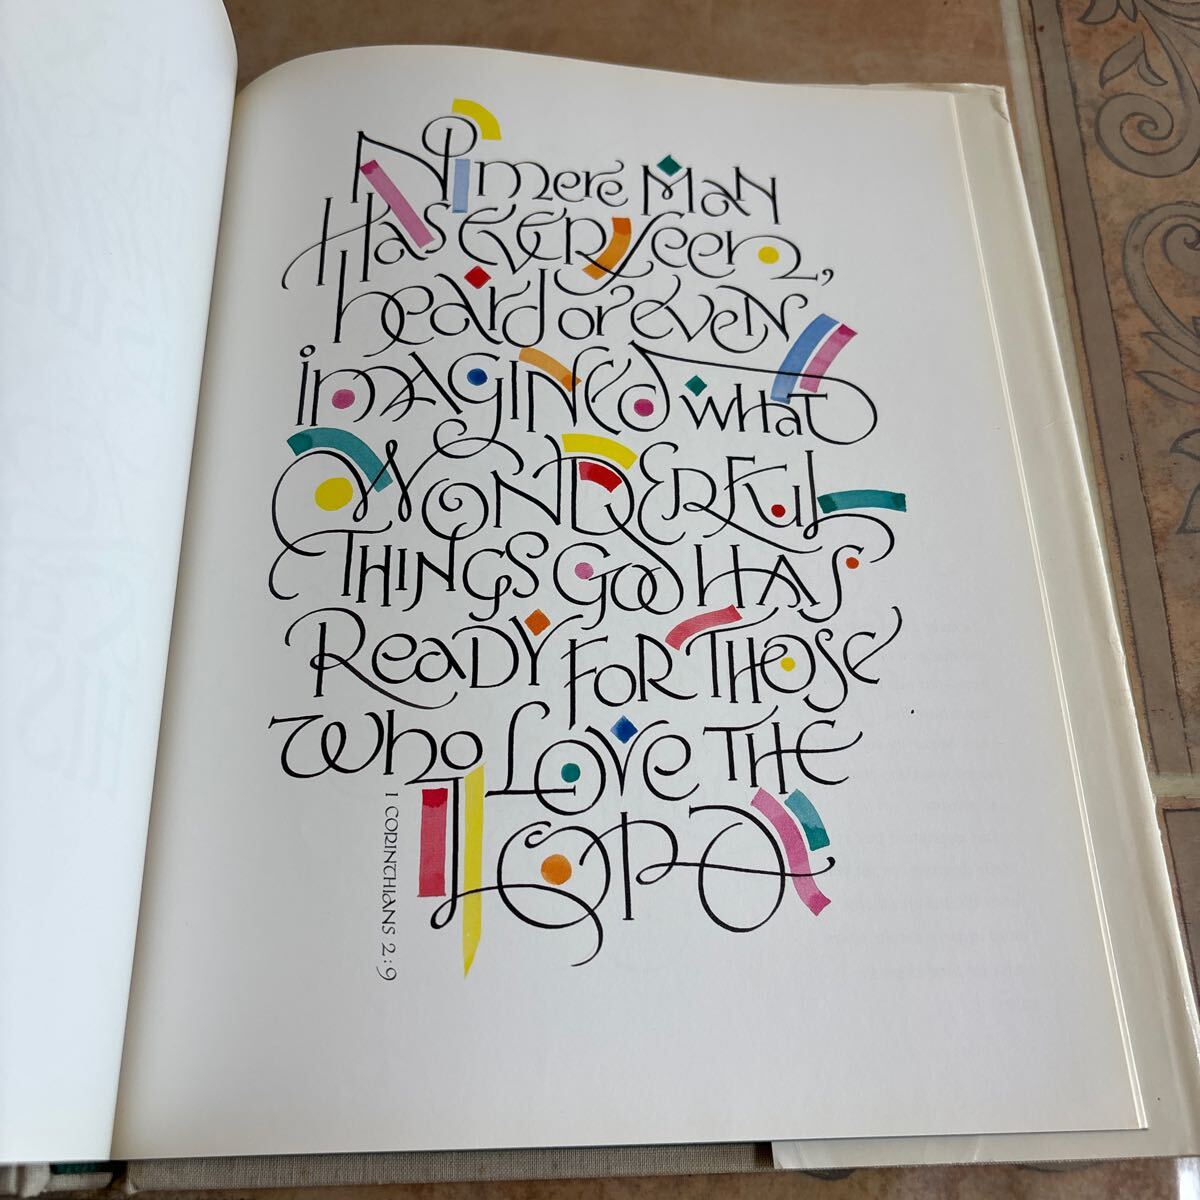 No mere Man
Has Ever seen,
heard or even
imagined what
Wonderful
Things God Has
Ready for Those
Who Love The
Lord
1 Corinthians 2:9